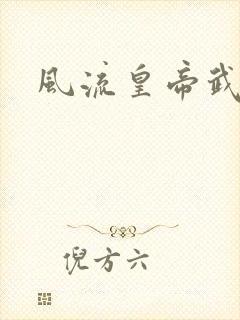 風流皇帝武
倪方六